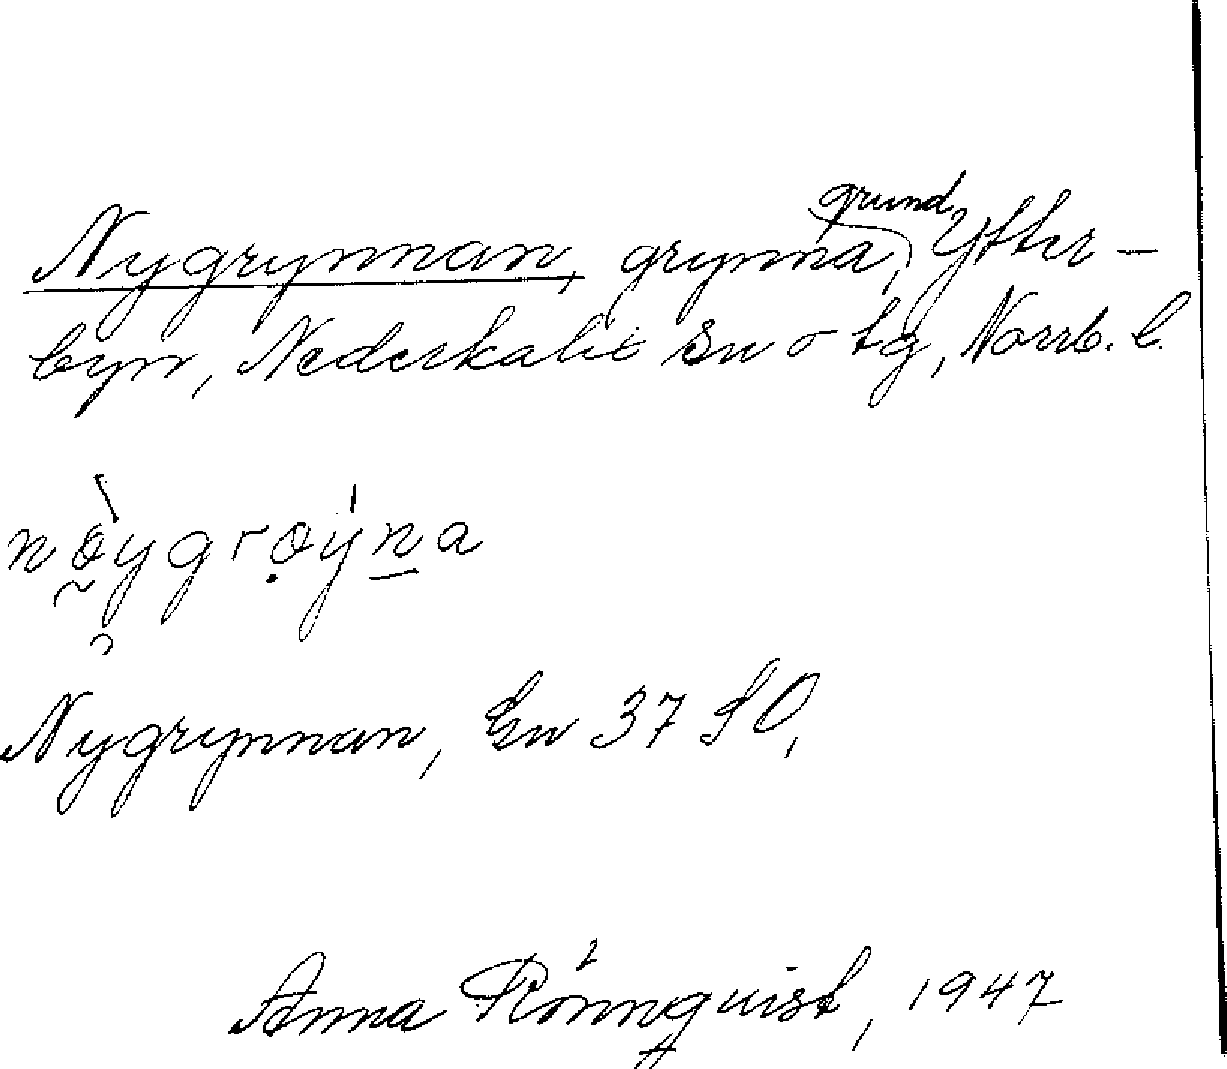 Nygrynnan, grynna, grund, Ytter-
byn, Nederkalix sn o tg, Norrb. l.
nöygrøyna
Nygrynnan, Gn 37 SO,
Anna Rönnquist, 1947